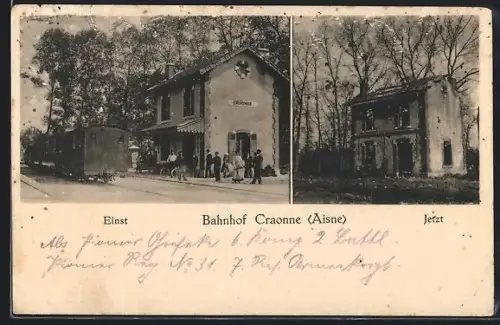 CRAONNE
Einst Bahnhof Craonne (Aisne) Jetzt
Abs. Pionier 6. Komp. 2. Battl.
Pionier Reg. No. 31. 7. Res.